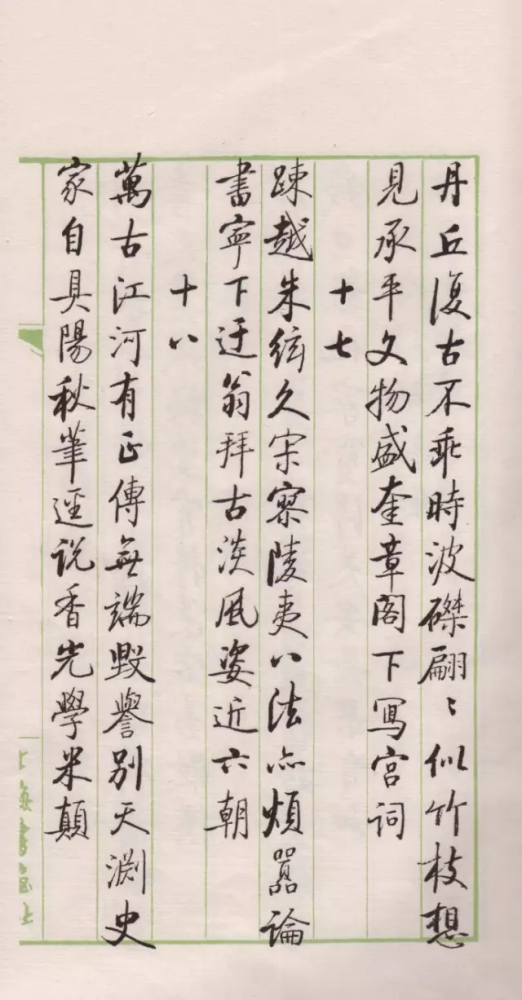 丹丘復古不乖時波磔翩〻似竹枝想
見承平文物盛奎章閣下寫宮词
十七
疎越朱絃久宋寥陵夷八法亦煩囂論
書寧下迂翁拜古淡風姿近六朝
十八
萬古江河有正傳無端毀譽別天淵史
家自具陽秋筆逕说香光學米顛
上海書畫社